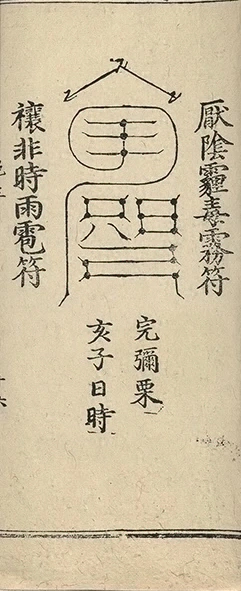 厭陰霾毒霧符
完彌栗
亥子日時
禳非時雨雹符